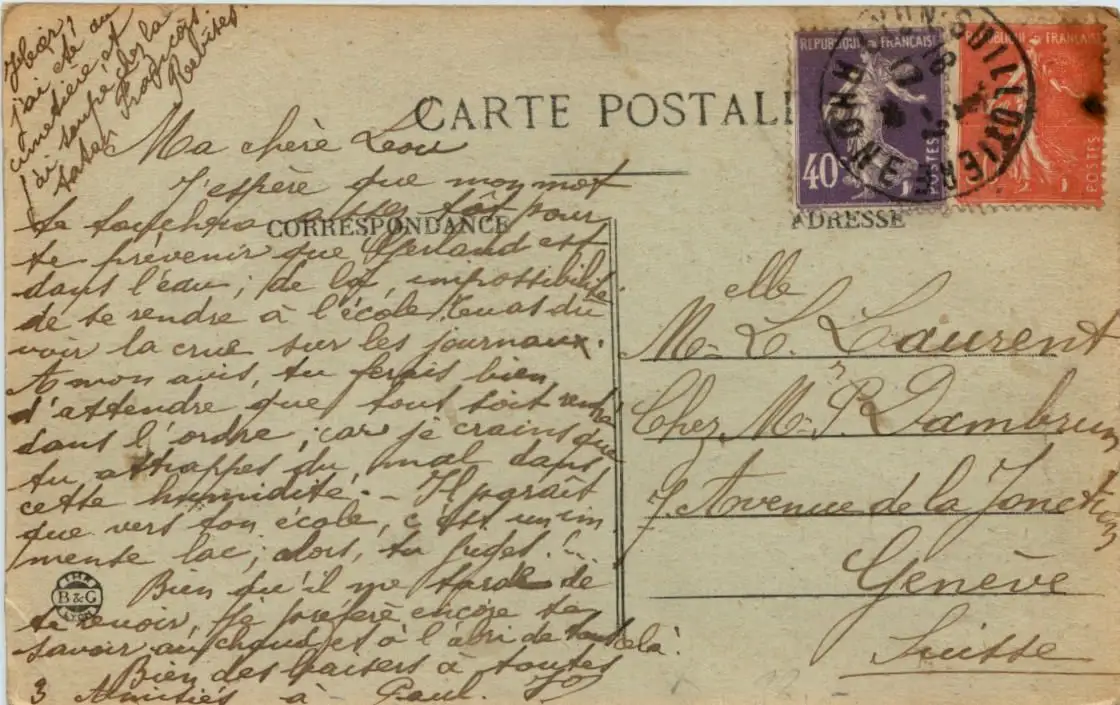 Hier,
j'ai été au
cimetière, et
j'ai soupé chez la
tatan François
CARTE POSTALE
REPUBLIQUE FRANÇAISE
40
POSTES
REPUBLIQUE FRANÇAISE
POSTES
LYON-GUILLOTIERE
RHONE
Ma chère Léou
J'espère que mon mot
te touchera assez tôt pour
CORRESPONDANCE
ADRESSE
te prévenir que Gerland est
dans l'eau; de là, impossibilité
de se rendre à l'école. Tu as dû
voir la crue sur les journaux.
A mon avis, tu ferais bien
d'attendre que tout soit rentré
dans l'ordre; car je crains que
tu attrappes du mal dans
cette humidité. - Il paraît
que vers ton école, c'est un im
mense lac; alors, tu juges!...
Bien qu'il me tarde de
te revoir, je préfère encore te
savoir au chaud et à l'abri de tout cela!
Bien des baisers à toutes
3 Amitiés à Paul.
B & G
LYON
Melle L. Laurent
Chez Mr P. Dambrun
7 Avenue de la Jonction
Genève
Suisse